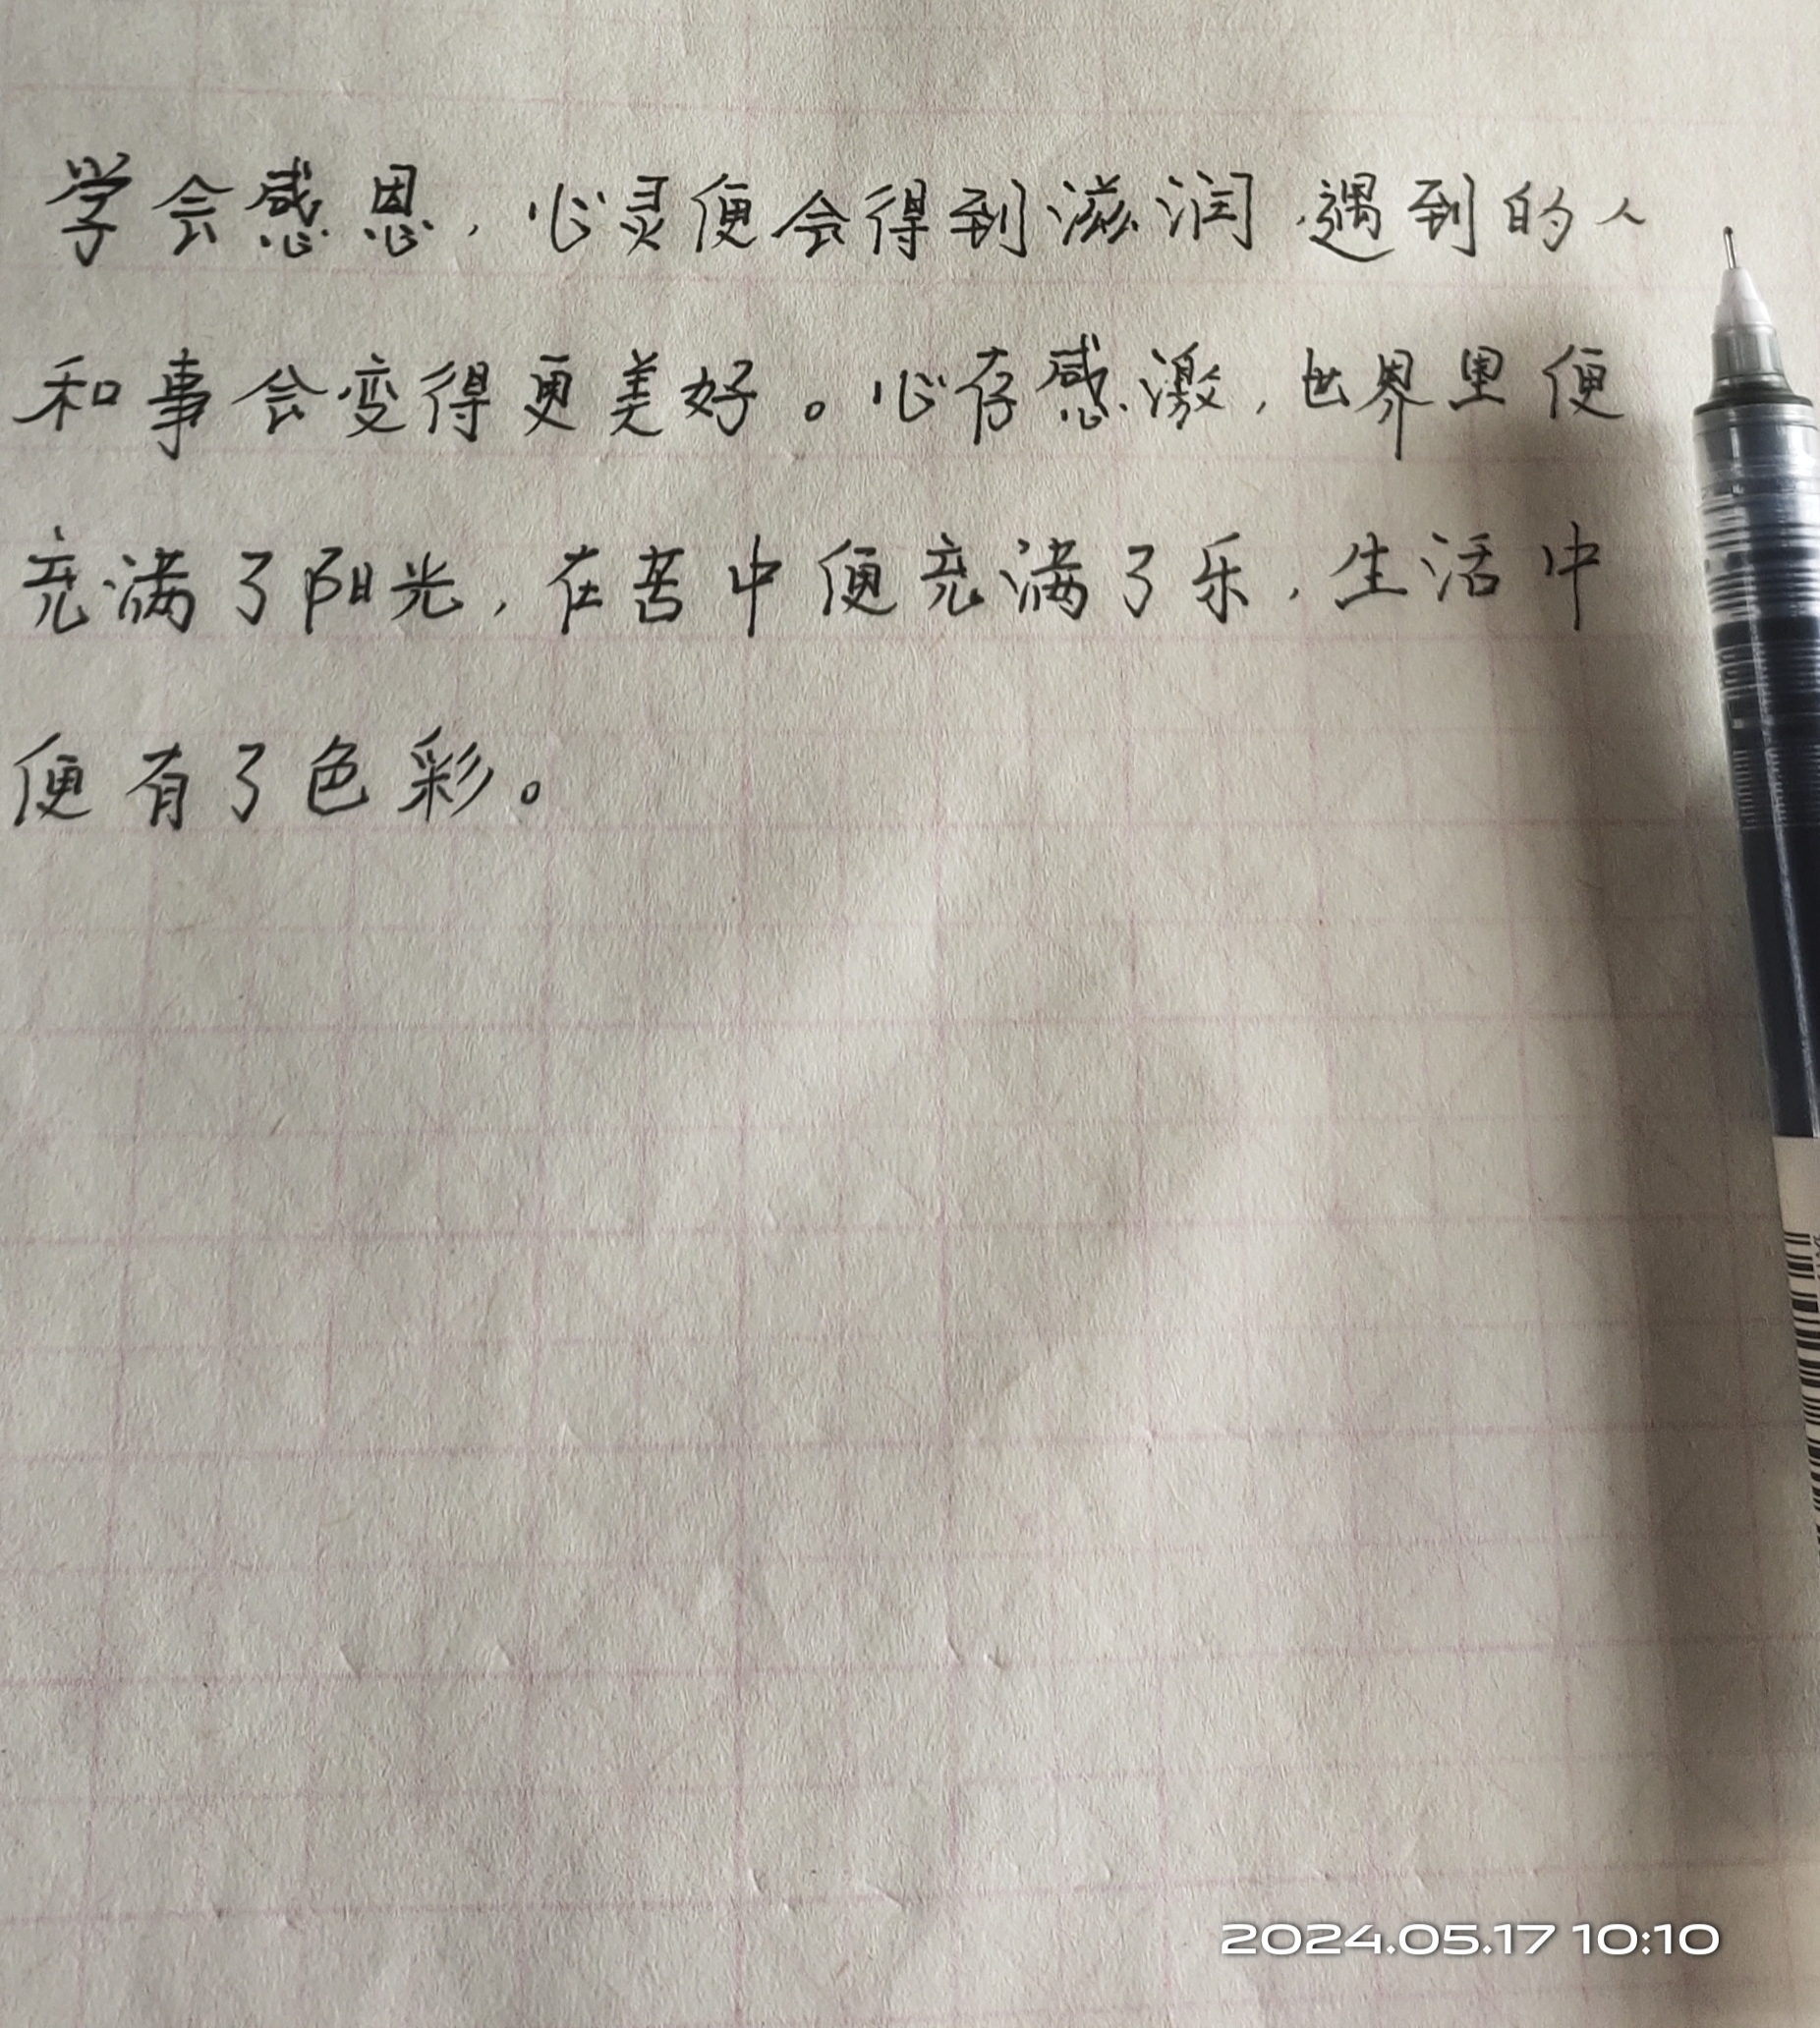 学会感恩，心灵便会得到滋润，遇到的人
和事会变得更美好。心存感激，世界里便
充满了阳光，在苦中便充满了乐，生活中
便有了色彩。
2024.05.17 10:10